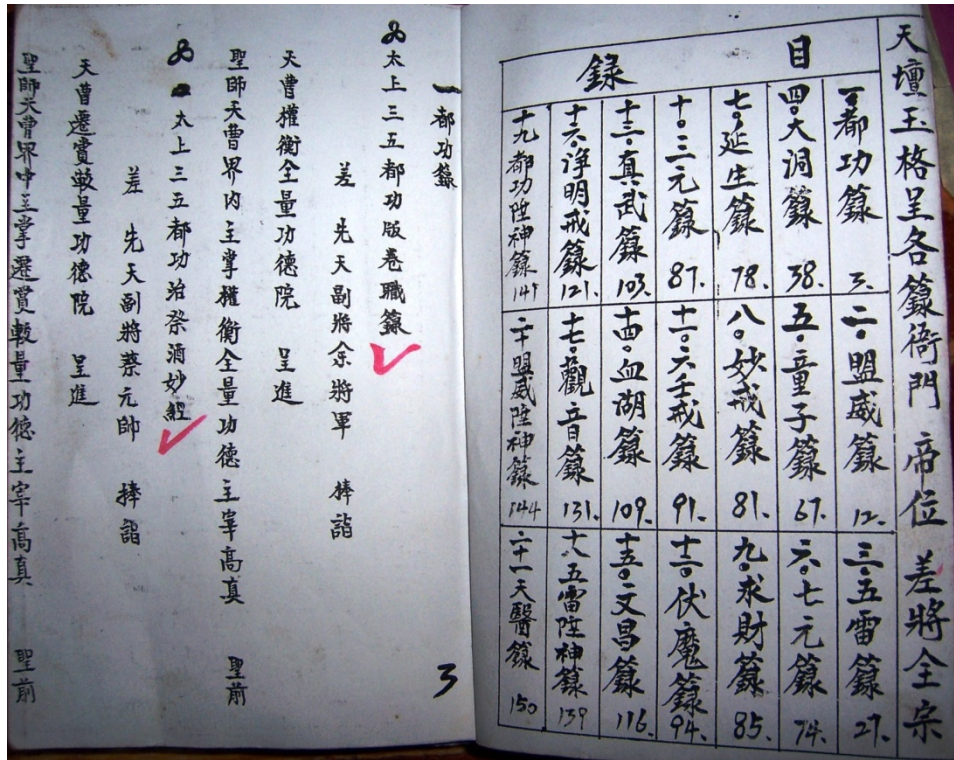 天壇玉格呈各籙衙門 帝位 差將全宗
目錄
一。都功籙 3.
二。盟威籙 12.
三。五雷籙 27.
四。大洞籙 38.
五。童子籙 67.
六。七元籙 74.
七。延生籙 78.
八。妙戒籙 81.
九。求財籙 85.
十。三元籙 87.
十一。六壬戒籙 91.
十二。伏魔籙 94.
十三。真武籙 103.
十四。血湖籙 109.
十五。文昌籙 116.
十六。淨明戒籙 121.
十七。觀音籙 131.
十八五雷陞神籙 139
十九都功陞神籙
二十盟威陞神籙 144
二十一天醫籙 150
一都功籙
3
太上三五都功版卷職籙
差 先天副將余將軍 捧詣
天曹權衡全量功德院 呈進
聖師天曹界内主掌權衡全量功德主宰高真 聖前
太上三五都功治祭酒妙經
差 先天副將蔡元帥 捧詣
天曹遷賞較量功德院 呈進
聖師天曹界中主掌遷賞較量功德主宰高真 聖前